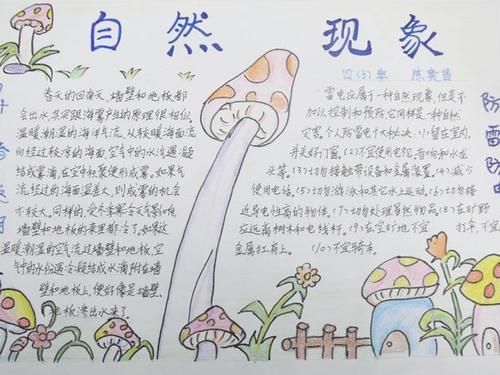 自然现象
四(3)班
春天的回南天,墙壁和地板都
会出水,其实跟海雾产生的原理很相似,
温暖潮湿的海洋气流,从较暖海面流
向经过较凉的海面,空气中的水汽遇冷凝
结成雾滴,在空中积聚便形成雾。如果气
流经过的海面温差大,则成雾的机会
亦较大。同样的,受冬季寒冷天气影响,
墙壁和地板的温度都冷了,如果这
温暖潮湿的空气流过墙壁和地板,空
气中的水份遇冷凝结成水滴附在墙
壁和地板上,便好像是墙壁、
地板渗出水来了。
雷电应属于一种自然现象,但是不
加以控制和预防,它同样是一种自然
灾害。个人防雷电十大秘诀:(1)留在室内,
并关好门窗。(2)不宜使用电视、音响和水龙
头等。(3)切勿接触带设备和金属装置。(4)减少
使用电话。(5)切勿游泳和其它水上运动。(6)切勿接
近导电性高的物体。(7)切勿处理易燃物品。(8)在旷野
应远离树木和电线杆。(9)在空旷地不宜打伞,不宜
金属扛肩上。(10)不宜骑车。
防雷防电